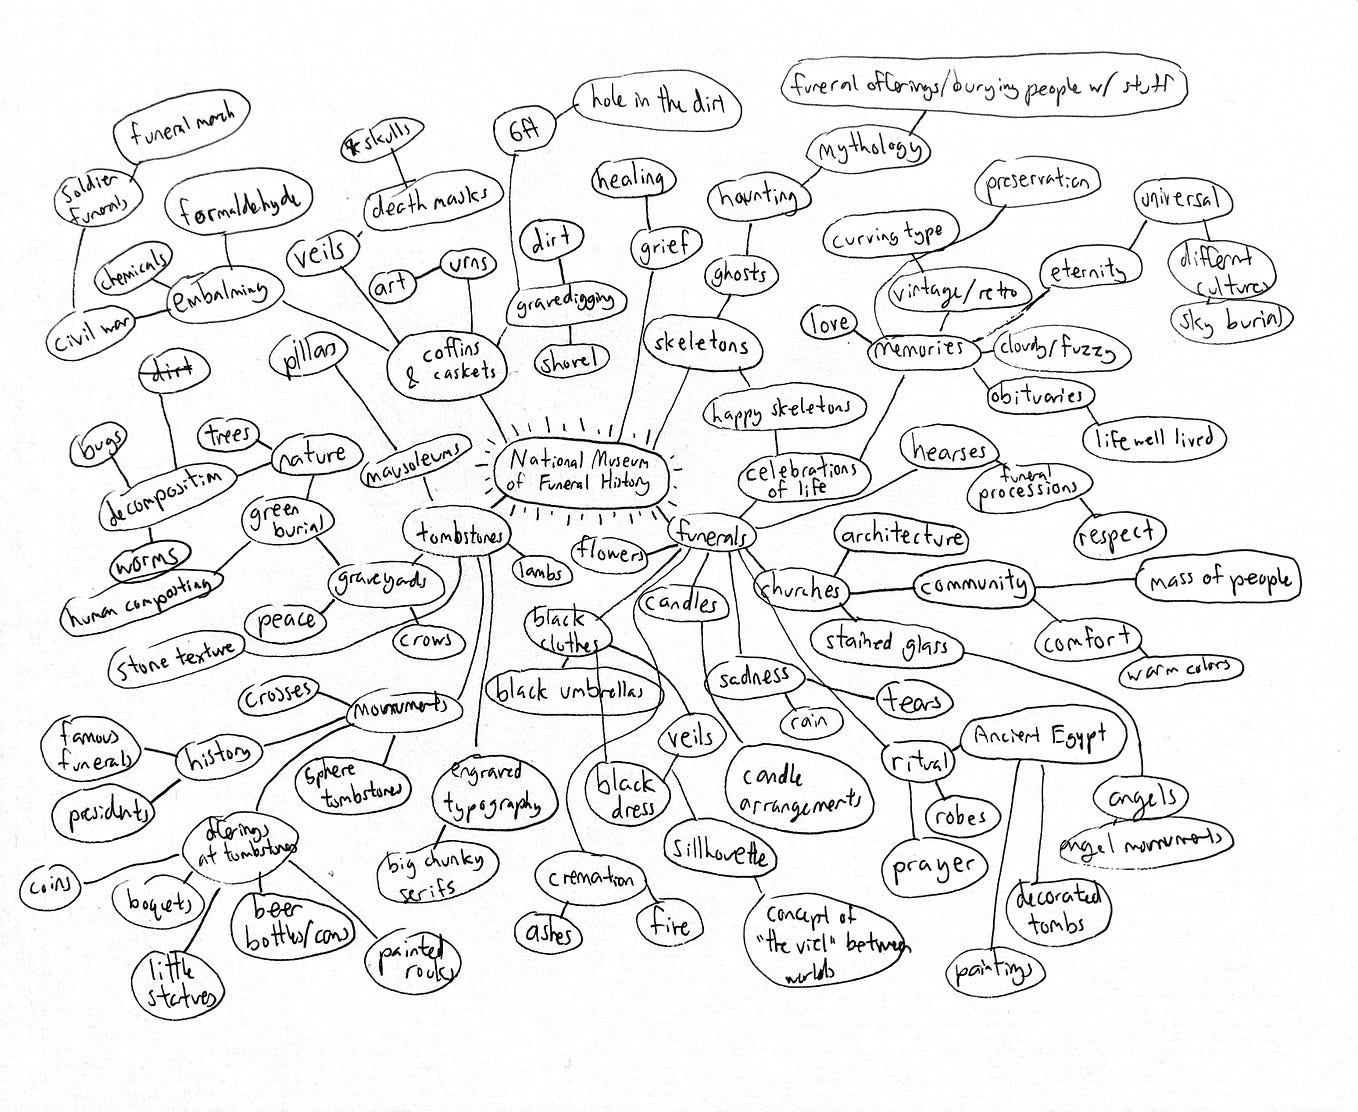 funeral offerings/burying people w/ stuff
hole in the dirt
6ft
funeral march
& skulls
mythology
healing
Soldier
funerals
formaldehyde
death masks
haunting
preservation
universal
veils
dirt
grief
curving type
chemicals
embalming
art
urns
ghosts
eternity
different
cultures
vintage/retro
gravedigging
civil war
sky burial
love
pillars
coffins
& caskets
shovel
skeletons
memories
cloudy/fuzzy
dirt
happy skeletons
obituaries
bugs
trees
nature
mausoleums
National Museum
of Funeral History
celebrations
of life
hearses
life well lived
decomposition
funeral
processions
green
burial
tombstones
funerals
architecture
respect
worms
flowers
lambs
human composting
graveyards
candles
churches
community
mass of people
peace
crows
black
clothes
stained glass
comfort
stone texture
warm colors
crosses
monuments
black umbrellas
sadness
tears
rain
famous
funerals
history
veils
ritual
Ancient Egypt
sphere
tombstones
engraved
typography
black
dress
candle
arrangements
presidents
angels
robes
offerings
at tombstones
angel monuments
sillhouette
big chunky
serifs
prayer
coins
cremation
boquets
beer
bottles/cans
decorated
tombs
ashes
fire
concept of
"the viel" between
worlds
painted
rocks
little
statues
paintings